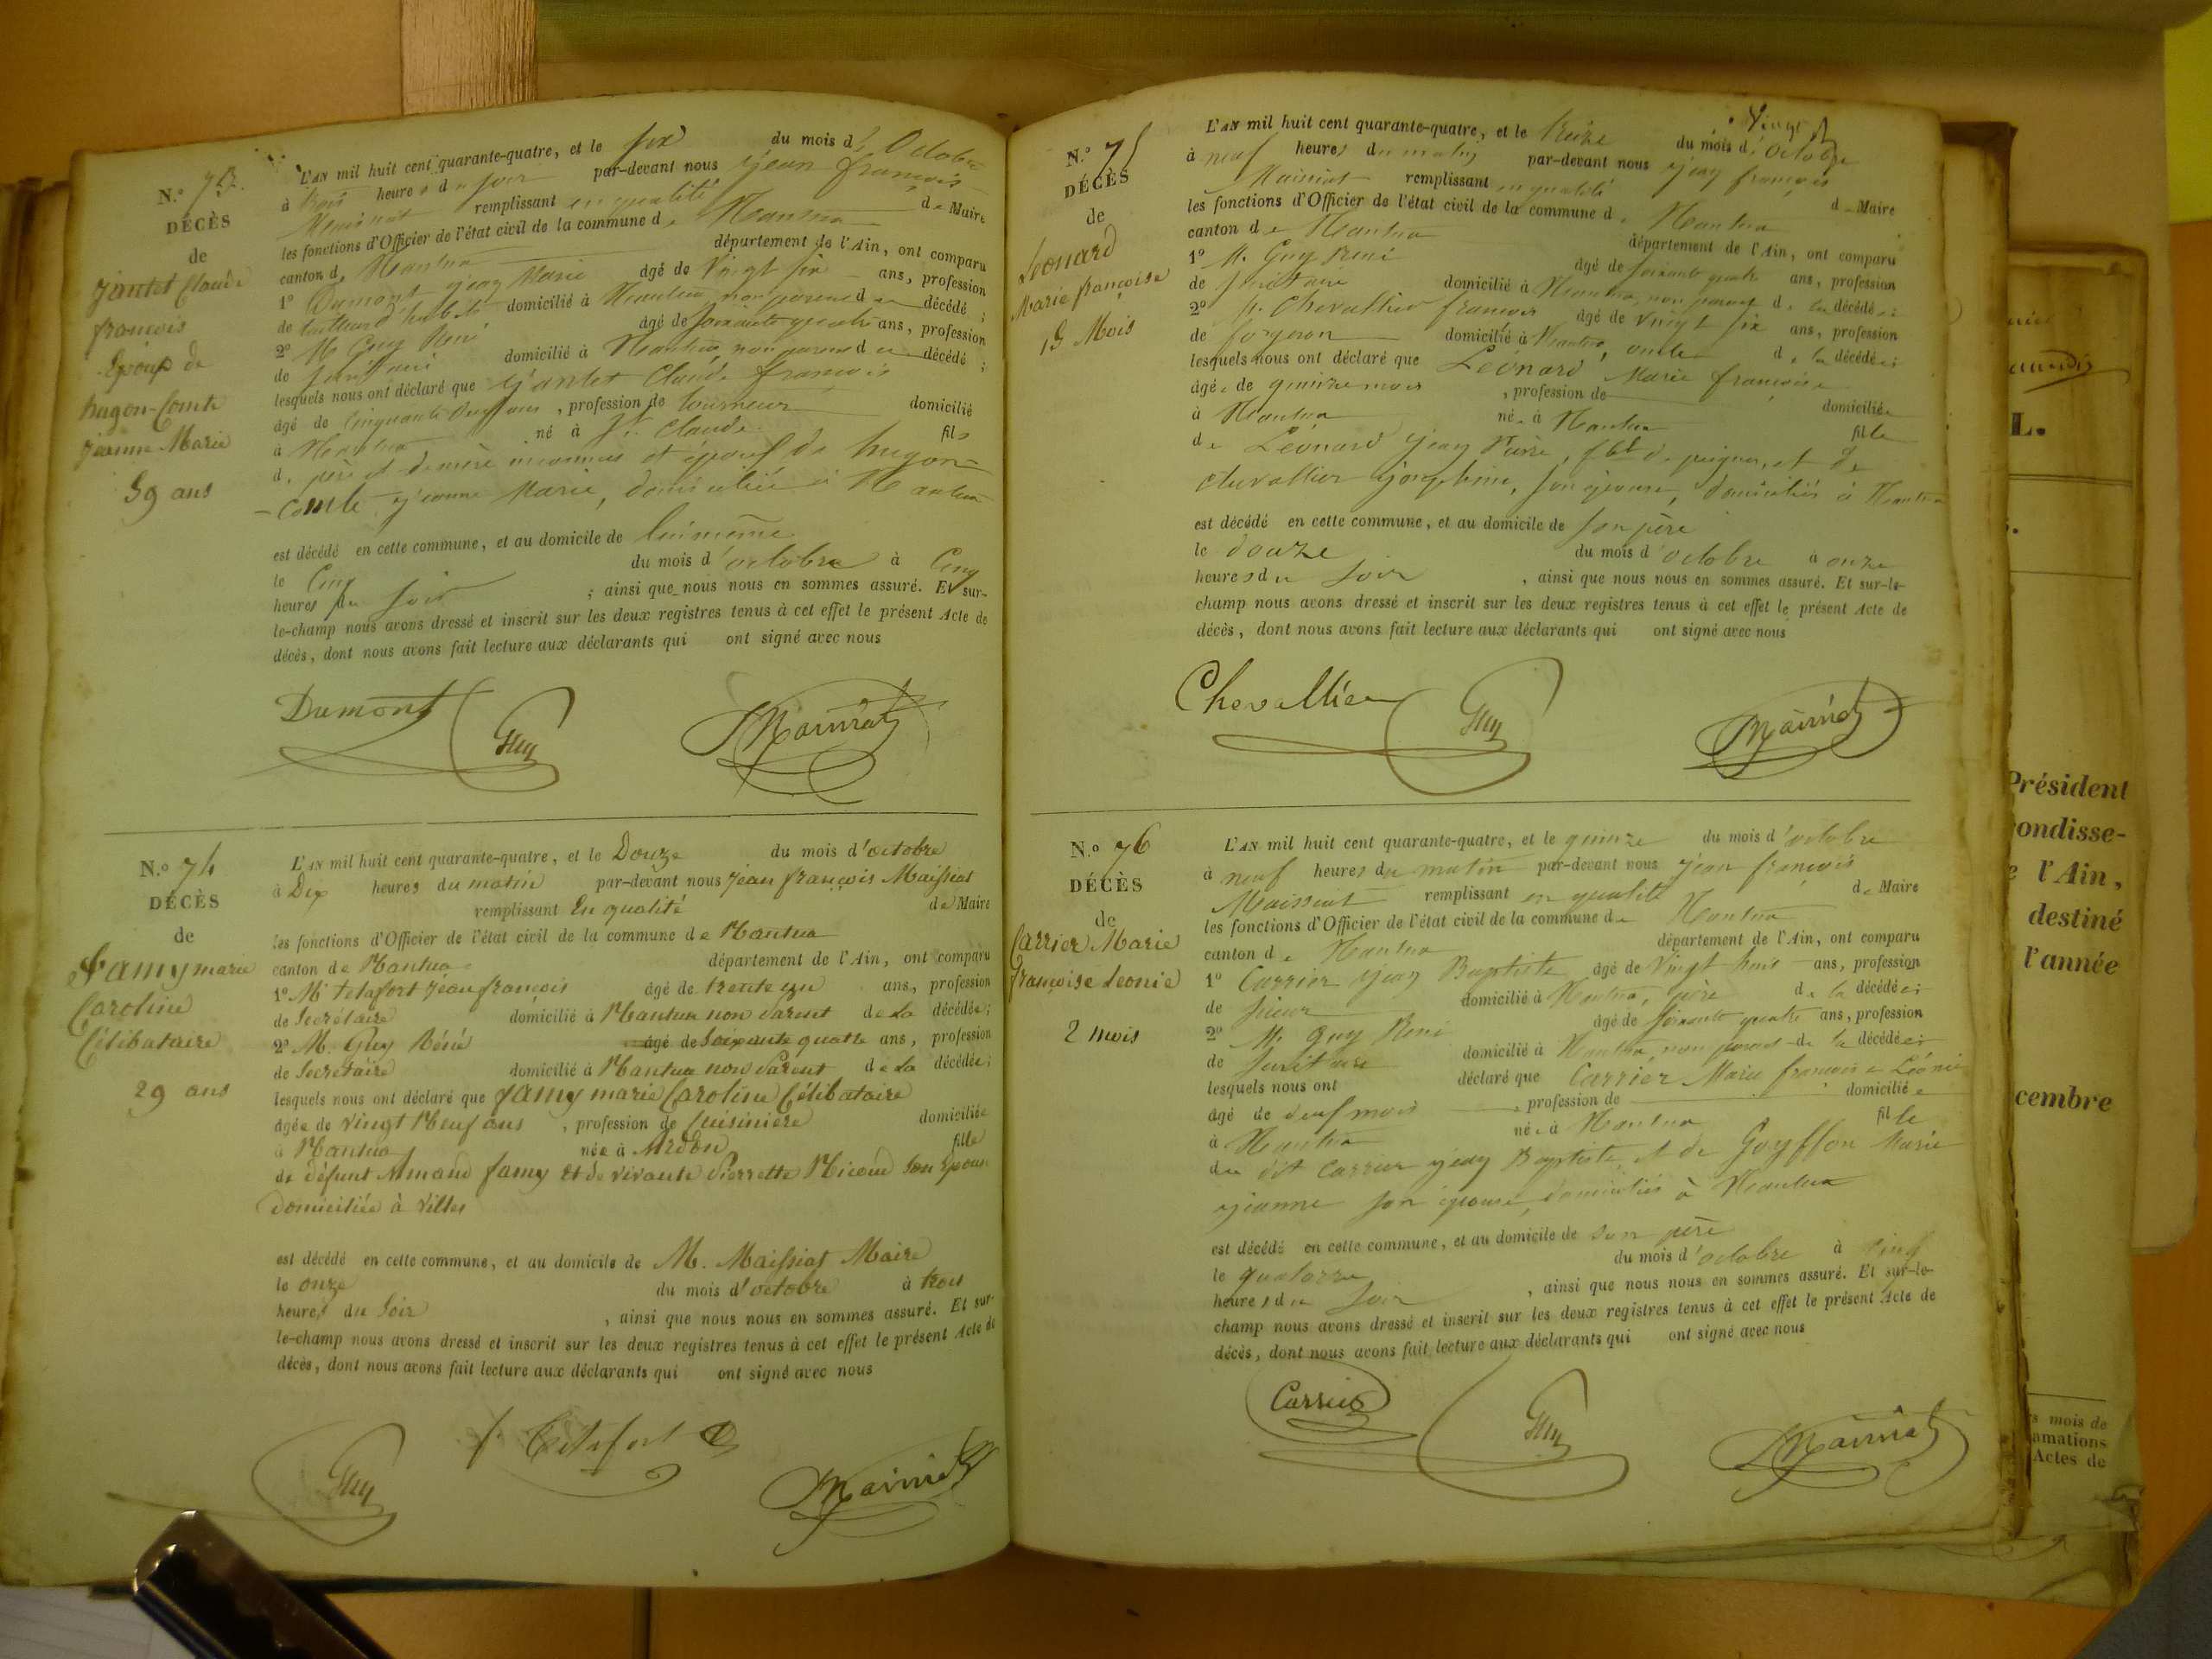 N.º 73.
DÉCÈS
de
Jantet Claude
françois
Epoux de
hugon-Comte
Jeanne Marie
59 ans
L'AN mil huit cent quarante-quatre, et le six du mois d'Octobre
à trois heures du soir par-devant nous Jean François
Maissiat remplissant en qualité de Maire
les fonctions d'Officier de l'état civil de la commune de Nantua
canton de Nantua département de l'Ain, ont comparu
1º Dumont Jean Marie âgé de vingt six ans, profession
de tailleur d'habits domicilié à Nantua non parent du décédé ;
2º M. Guy René âgé de soixante quatre ans, profession
de secrétaire domicilié à Nantua, non parent du décédé ;
lesquels nous ont déclaré que Jantet Claude françois
âgé de cinquante neuf ans, profession de tourneur domicilié
à Nantua né à St. Claude fils
de père et de mère inconnus et époux de hugon-
-Comte Jeanne Marie, domiciliée à Nantua
est décédé en cette commune, et au domicile de lui même
le Cinq du mois d'octobre à Cinq
heures du soir ; ainsi que nous nous en sommes assuré. Et sur-
le-champ nous avons dressé et inscrit sur les deux registres tenus à cet effet le présent Acte de
décès, dont nous avons fait lecture aux déclarants qui ont signé avec nous
Dumont Guy Maissiat
N.º 74
DÉCÈS
de
Famy marie
Caroline
Célibataire
29 ans
L'AN mil huit cent quarante-quatre, et le Douze du mois d'octobre
à Dix heures du matin par-devant nous Jean françois Maissiat
remplissant En qualité de Maire
les fonctions d'Officier de l'état civil de la commune de Nantua
canton de Nantua département de l'Ain, ont comparu
1º M. tetafort Jean françois âgé de trente un ans, profession
de Secrétaire domicilié à Nantua non Parent de la décédée ;
2º M. Guy Réné âgé de Soixante quatre ans, profession
de Secrétaire domicilié à Nantua non Parent de la décédée ;
lesquels nous ont déclaré que famy marie Caroline Célibataire
âgée de vingt Neuf ans, profession de Cuisinière domiciliée
à Nantua née à Ardon fille
de défunt Armand famy Et de vivante Pierrette Nicoud Son Epouse
Domiciliée à Villes
est décédé en cette commune, et au domicile de M. Maissiat Maire
le onze du mois d'octobre à trois
heures du Soir, ainsi que nous nous en sommes assuré. Et sur-
le-champ nous avons dressé et inscrit sur les deux registres tenus à cet effet le présent Acte de
décès, dont nous avons fait lecture aux déclarants qui ont signé avec nous
Guy f. Tetafort Maissiat
N.º 75
DÉCÈS
de
Leonard
Marie françoise
15 Mois
L'AN mil huit cent quarante-quatre, et le treize du mois d'Octobre
à neuf heures du matin par-devant nous Jean françois
Maissiat remplissant en qualité de Maire
les fonctions d'Officier de l'état civil de la commune de Nantua
canton de Nantua département de l'Ain, ont comparu
1º M. Guy René âgé de soixante quatre ans, profession
de secrétaire domicilié à Nantua, non parent de la décédée ;
2º M. Chevallier françois âgé de vingt six ans, profession
de forgeron domicilié à Nantua, oncle de la décédée ;
lesquels nous ont déclaré que Léonard Marie françoise
âgée de quinze mois, profession de domiciliée
à Nantua née à Nantua fille
de Léonard Jean Pierre, fbt de peignes, et de
chevallier Josephine, son épouse, domiciliés à Nantua
est décédé en cette commune, et au domicile de son père
le douze du mois d'octobre à onze
heures du soir, ainsi que nous nous en sommes assuré. Et sur-le-
champ nous avons dressé et inscrit sur les deux registres tenus à cet effet le présent Acte de
décès, dont nous avons fait lecture aux déclarants qui ont signé avec nous
Chevallier Guy Maissiat
N.º 76
DÉCÈS
de
Carrier Marie
françoise Leonie
2 mois
L'AN mil huit cent quarante-quatre, et le quinze du mois d'octobre
à neuf heures du matin par-devant nous Jean françois
Maissiat remplissant en qualité de Maire
les fonctions d'Officier de l'état civil de la commune de Nantua
canton de Nantua département de l'Ain, ont comparu
1º Carrier Jean Baptiste âgé de vingt huit ans, profession
de scieur domicilié à Nantua, père de la décédée ;
2º M. Guy René âgé de soixante quatre ans, profession
de secrétaire domicilié à Nantua, non parent de la décédée ;
lesquels nous ont déclaré que Carrier Marie françoise Léonie
âgé de deux mois, profession de domiciliée
à Nantua née à Nantua fille
du dit Carrier Jean Baptiste et de Goyffon Marie
Jeanne son épouse, domiciliés à Nantua
est décédé en cette commune, et au domicile de son père
le quatorze du mois d'octobre à cinq
heures du soir, ainsi que nous nous en sommes assuré. Et sur-le-
champ nous avons dressé et inscrit sur les deux registres tenus à cet effet le présent Acte de
décès, dont nous avons fait lecture aux déclarants qui ont signé avec nous
Carrier Guy Maissiat
L.
Président
ondisse-
l'Ain,
destiné
l'année
cembre
s mois de
amations
Actes de